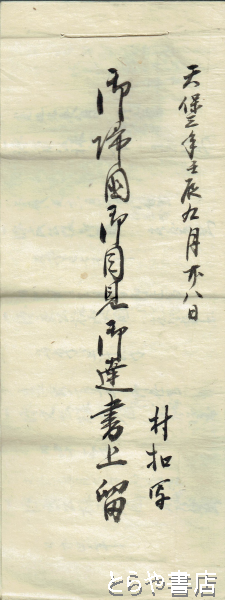 天保三年壬辰九月廿八日
御帰国御目見御達書上留
村扣写
とらや書店